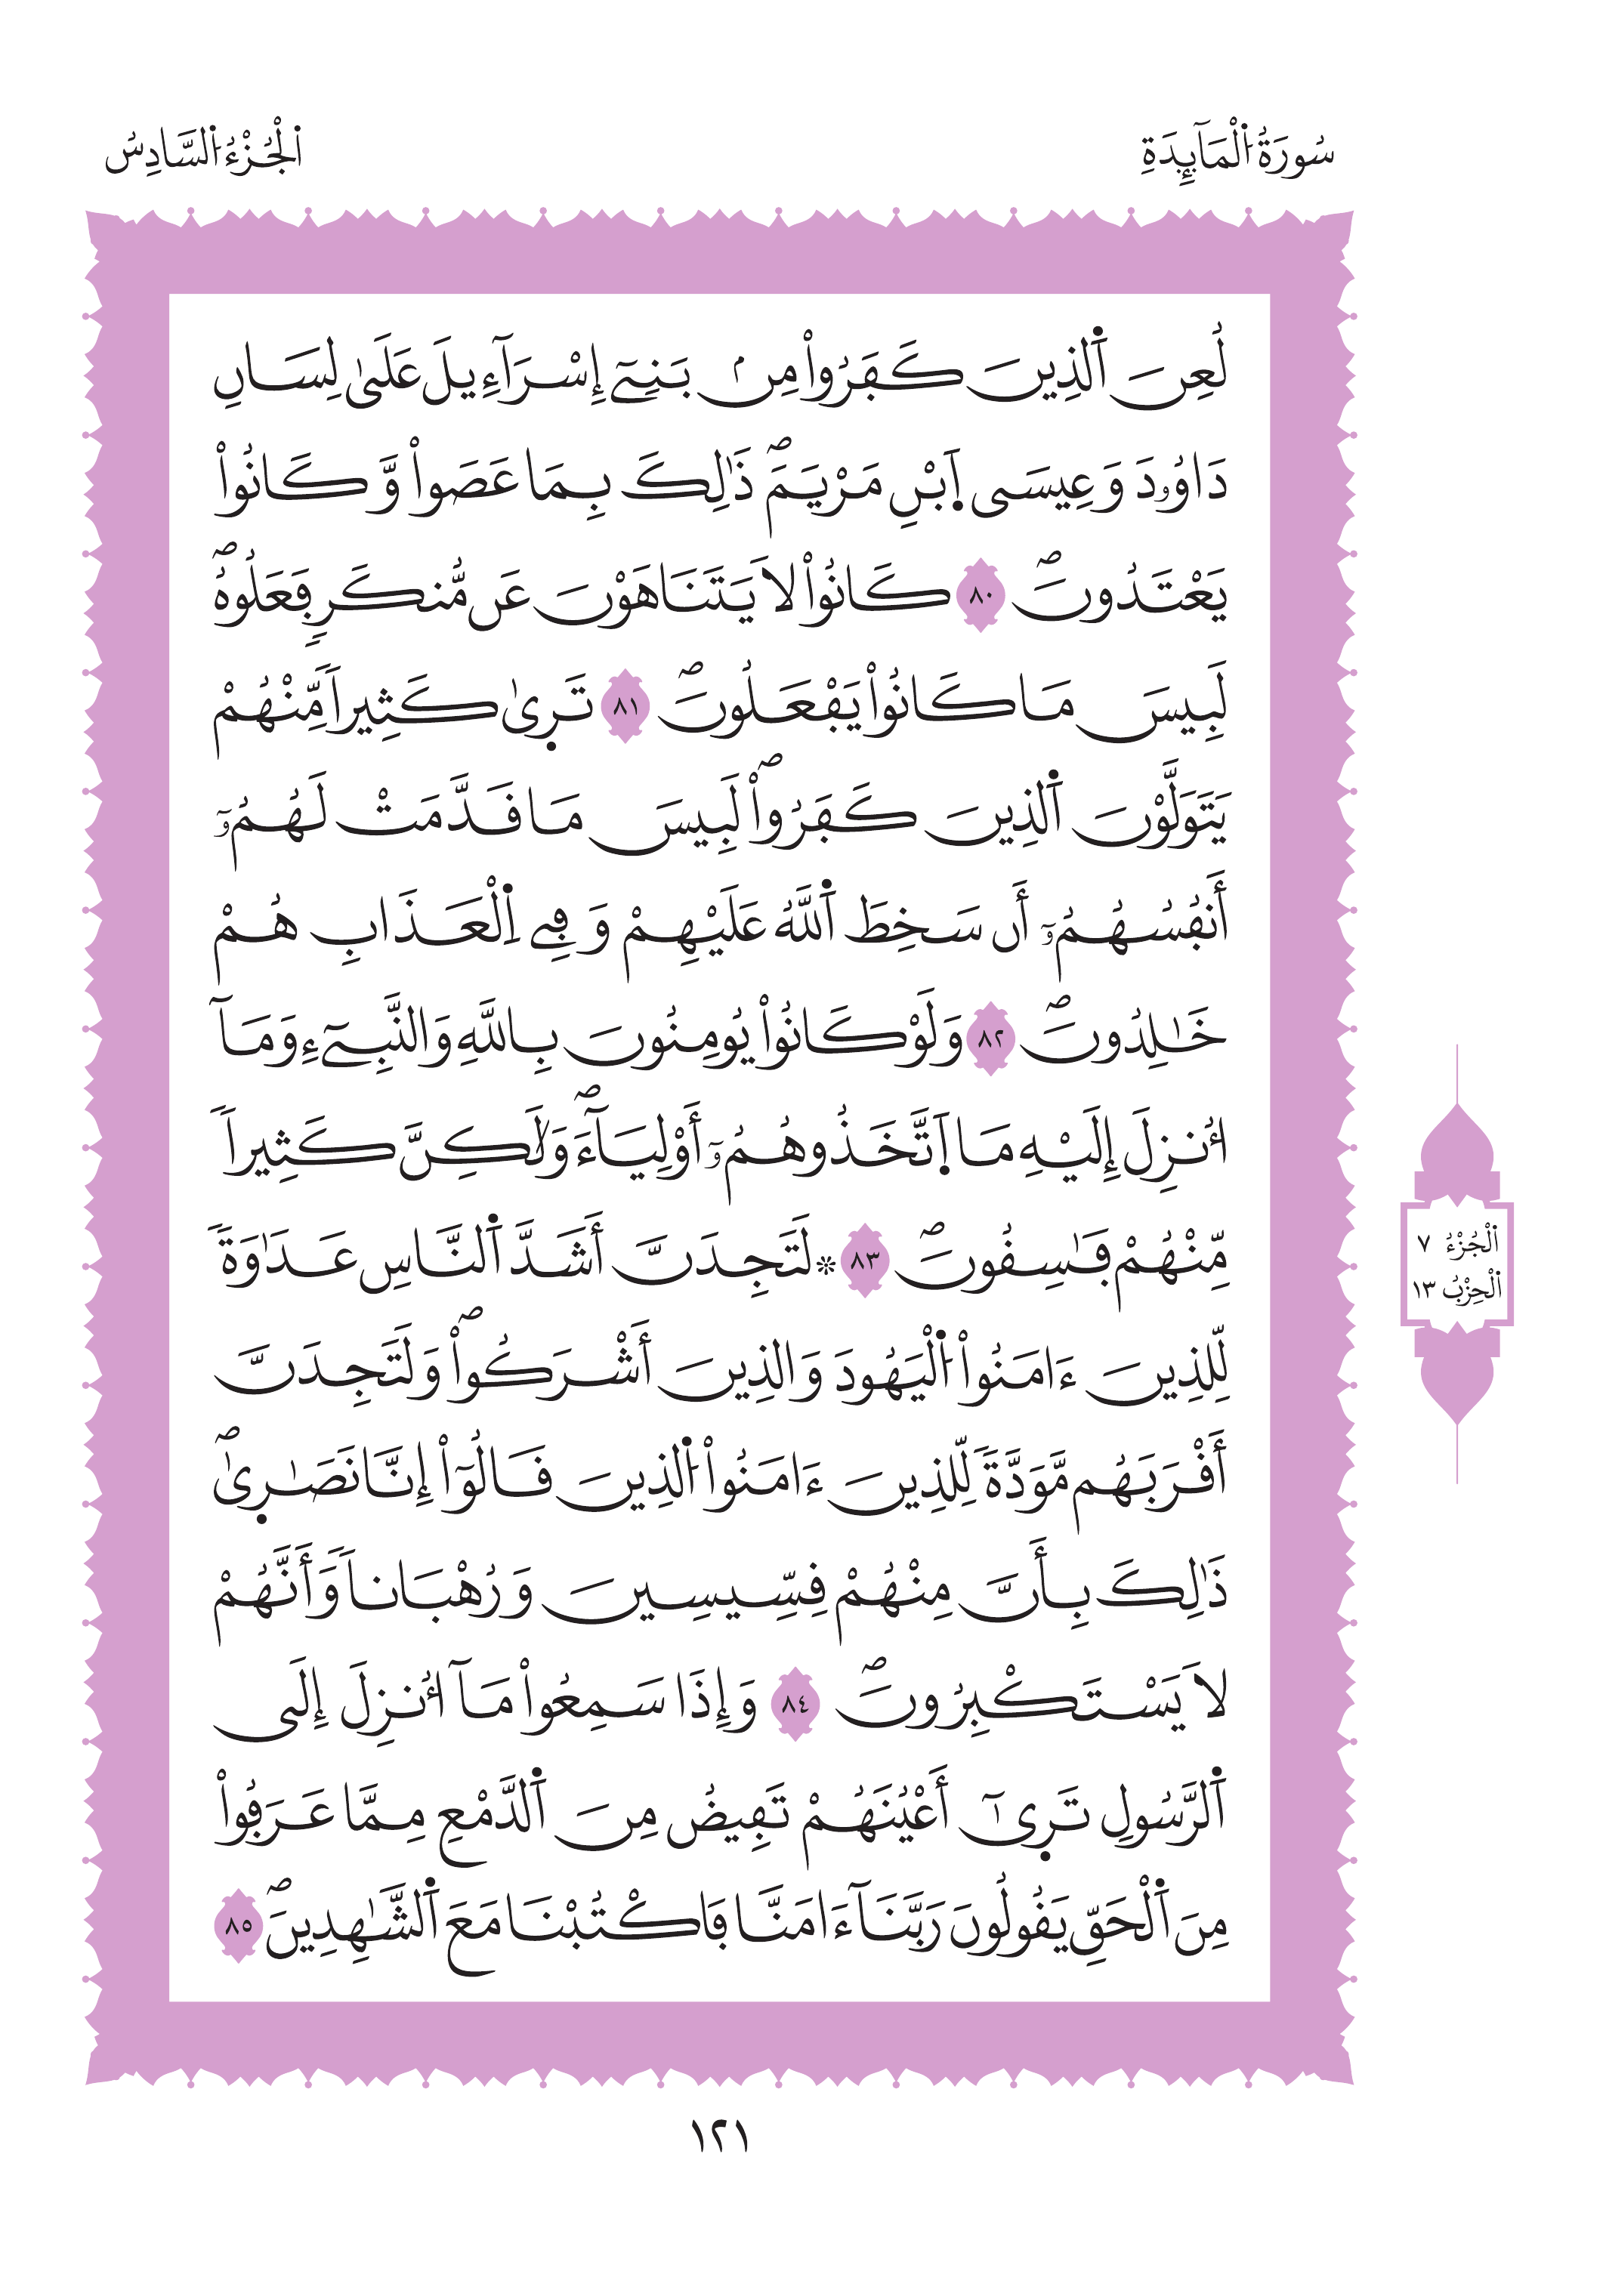 سُورَةُ اُ۬لْمَآئِدَةِ
اَ۬لْجُزْءُ اُ۬لسَّادِسُ
لُعِنَ اَ۬لذِينَ كَفَرُواْ مِنۢ بَنِےٓ إِسْرَآءِيلَ عَلَىٰ لِسَانِ
دَاوُۥدَ وَعِيسَى اَ۪بْنِ مَرْيَمَۖ ذَٰلِكَ بِمَا عَصَواْ وَّكَانُواْ
يَعْتَدُونَۖ ٨٠ كَانُواْ لَا يَتَنَاهَوْنَ عَن مُّنكَرٖ فَعَلُوهُۖ
لَبِيسَ مَا كَانُواْ يَفْعَلُونَۖ ٨١ تَر۪ىٰ كَثِيراٗ مِّنْهُمْ
يَتَوَلَّوْنَ اَ۬لذِينَ كَفَرُواْۖ لَبِيسَ مَا قَدَّمَتْ لَهُمُۥٓ
أَنفُسُهُمُۥٓ أَن سَخِطَ اَ۬للَّهُ عَلَيْهِمْ وَفِے اِ۬لْعَذَابِ هُمْ
خَٰلِدُونَۖ ٨٢ وَلَوْ كَانُواْ يُومِنُونَ بِاللَّهِ وَالنَّبِےٓءِ وَمَآ
أُنزِلَ إِلَيْهِ مَا اَ۪تَّخَذُوهُمُۥٓ أَوْلِيَآءَۖ وَلَٰكِنَّ كَثِيراٗ
مِّنْهُمْ فَٰسِقُونَۖ ٨٣ ۞ لَتَجِدَنَّ أَشَدَّ اَ۬لنَّاسِ عَدَٰوَةٗ
لِّلذِينَ ءَامَنُواْ اُ۬لْيَهُودَ وَالذِينَ أَشْرَكُواْۖ وَلَتَجِدَنَّ
أَقْرَبَهُم مَّوَدَّةٗ لِّلذِينَ ءَامَنُواْ اُ۬لذِينَ قَالُوٓاْ إِنَّا نَصَٰر۪ىٰۖ
ذَٰلِكَ بِأَنَّ مِنْهُمْ قِسِّيسِينَ وَرُهْبَاناٗ وَأَنَّهُمْ
لَا يَسْتَكْبِرُونَۖ ٨٤ وَإِذَا سَمِعُواْ مَآ أُنزِلَ إِلَى
اَ۬لرَّسُولِ تَر۪ىٰٓ أَعْيُنَهُمْ تَفِيضُ مِنَ اَ۬لدَّمْعِ مِمَّا عَرَفُواْ
مِنَ اَ۬لْحَقِّ يَقُولُونَ رَبَّنَآ ءَامَنَّا فَاكْتُبْنَا مَعَ اَ۬لشَّٰهِدِينَۖ ٨٥
اَ۬لْجُزْءُ ٧
اَ۬لْحِزْبُ ١٣
١٢١